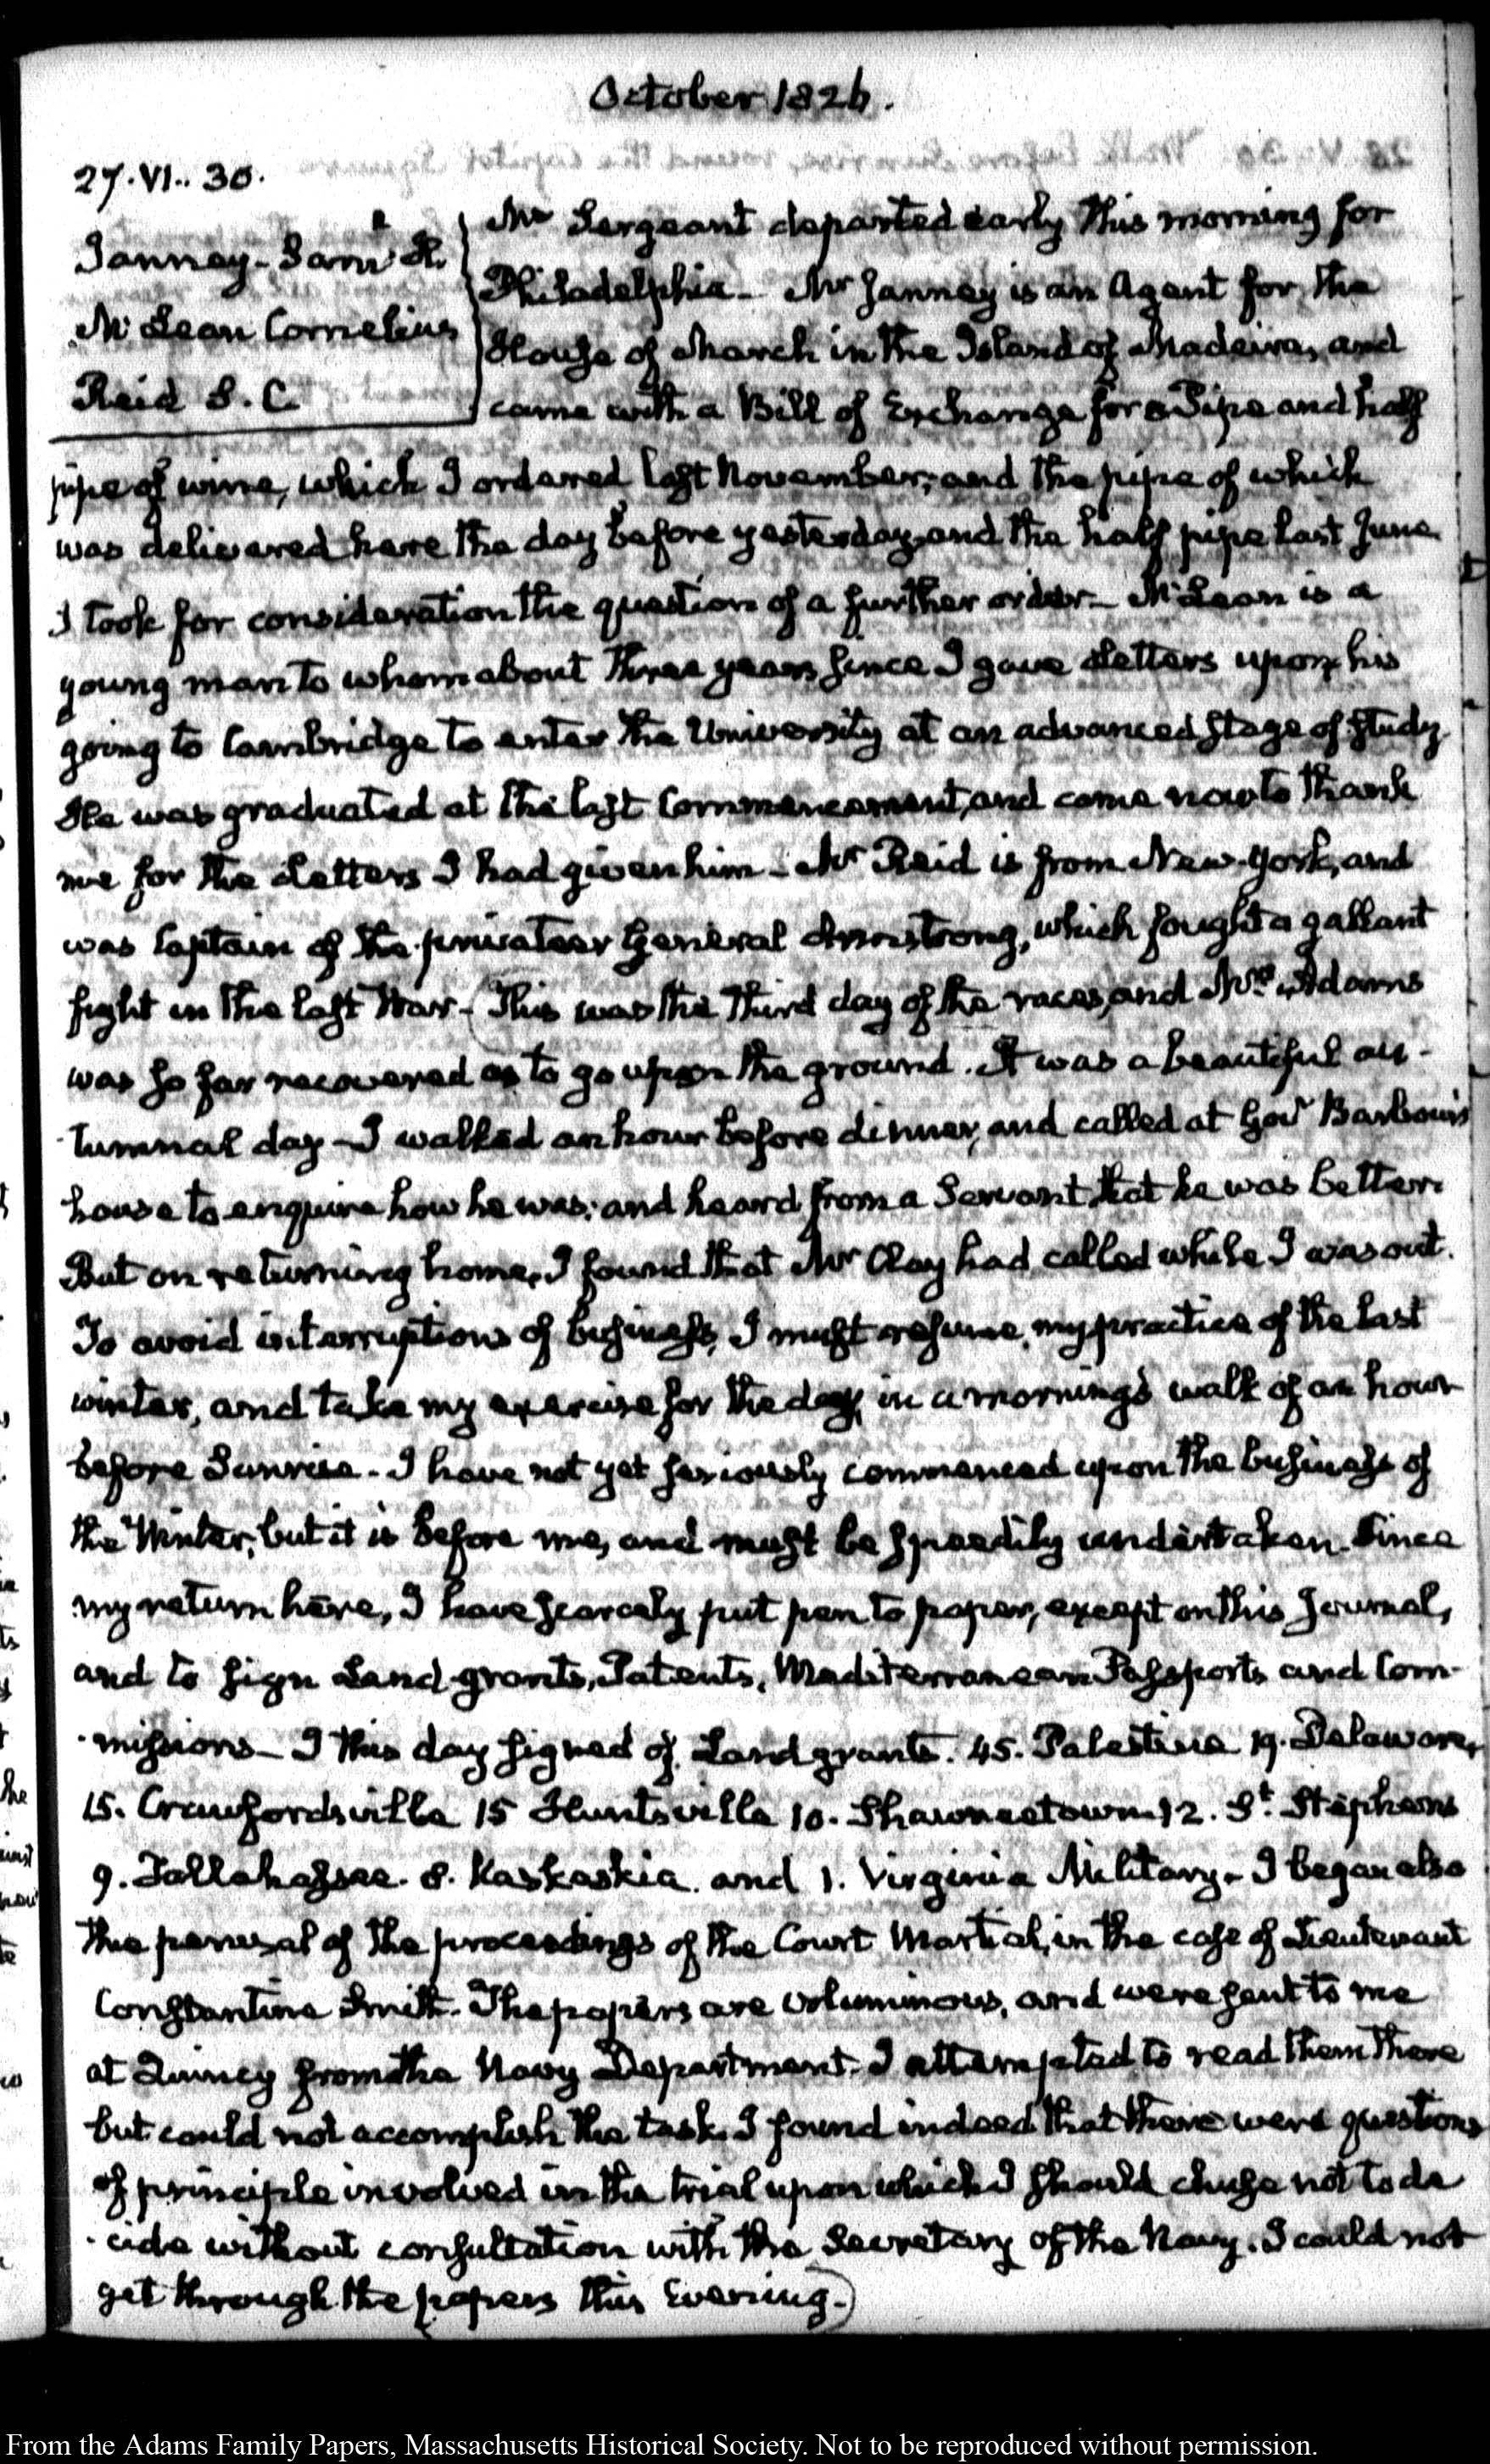 October 1826.
27. VI.. 30.
Janney - Saml H.
McLean Cornelius
Reid S. C.
Mr Sergeant departed early this morning for
Philadelphia - Mr Janney is an Agent for the
House of March in the Island of Madeira, and
came with a Bill of Exchange for a Pipe and half
pipe of wine, which I ordered last November; and the pipe of which
was delivered here the day before yesterday, and the half pipe last June.
I took for consideration the question of a further order - McLean is a
young man to whom about three years since I gave Letters upon his
going to Cambridge to enter the University at an advanced stage of study.
He was graduated at the last Commencement, and came now to thank
me for the Letters I had given him - Mr Reid is from New-York, and
was Captain of the privateer General Armstrong, which fought a gallant
fight in the last War - (This was the third day of the races, and Mrs Adams
was so far recovered as to go upon the ground. It was a beautiful au-
-tumnal day - I walked an hour before dinner, and called at Govr Barbour's
house to enquire how he was; and heard from a Servant that he was better.
But on returning home, I found that Mr Clay had called while I was out.
To avoid interruptions of business, I must resume, my practice of the last
winter, and take my exercise for the day, in a morning's walk of an hour
before Sunrise - I have not yet seriously commenced upon the business of
the Winter, but it is before me, and must be speedily undertaken. Since
my return here, I have scarcely put pen to paper, except on this Journal,
and to sign Land grants, Patents, Mediterranean Passports and Com-
-missions - I this day signed of Land grants. 45. Palestine 19. Delaware,
15. Crawfordsville 15 Huntsville 10. Shawneetown 12. St. Stephens
9. Tallahassee. 8. Kaskaskia. and 1. Virginia Military - I began also
the perusal of the proceedings of the Court Martial, in the case of Lieutenant
Constantine Smith. The papers are voluminous, and were sent to me
at Quincy from the Navy Department. I attempted to read them there
but could not accomplish the task. I found indeed that there were questions
of principle involved in the trial upon which I should chuse not to de
-cide without consultation with the Secretary of the Navy. I could not
get through the papers this Evening -)
From the Adams Family Papers, Massachusetts Historical Society. Not to be reproduced without permission.